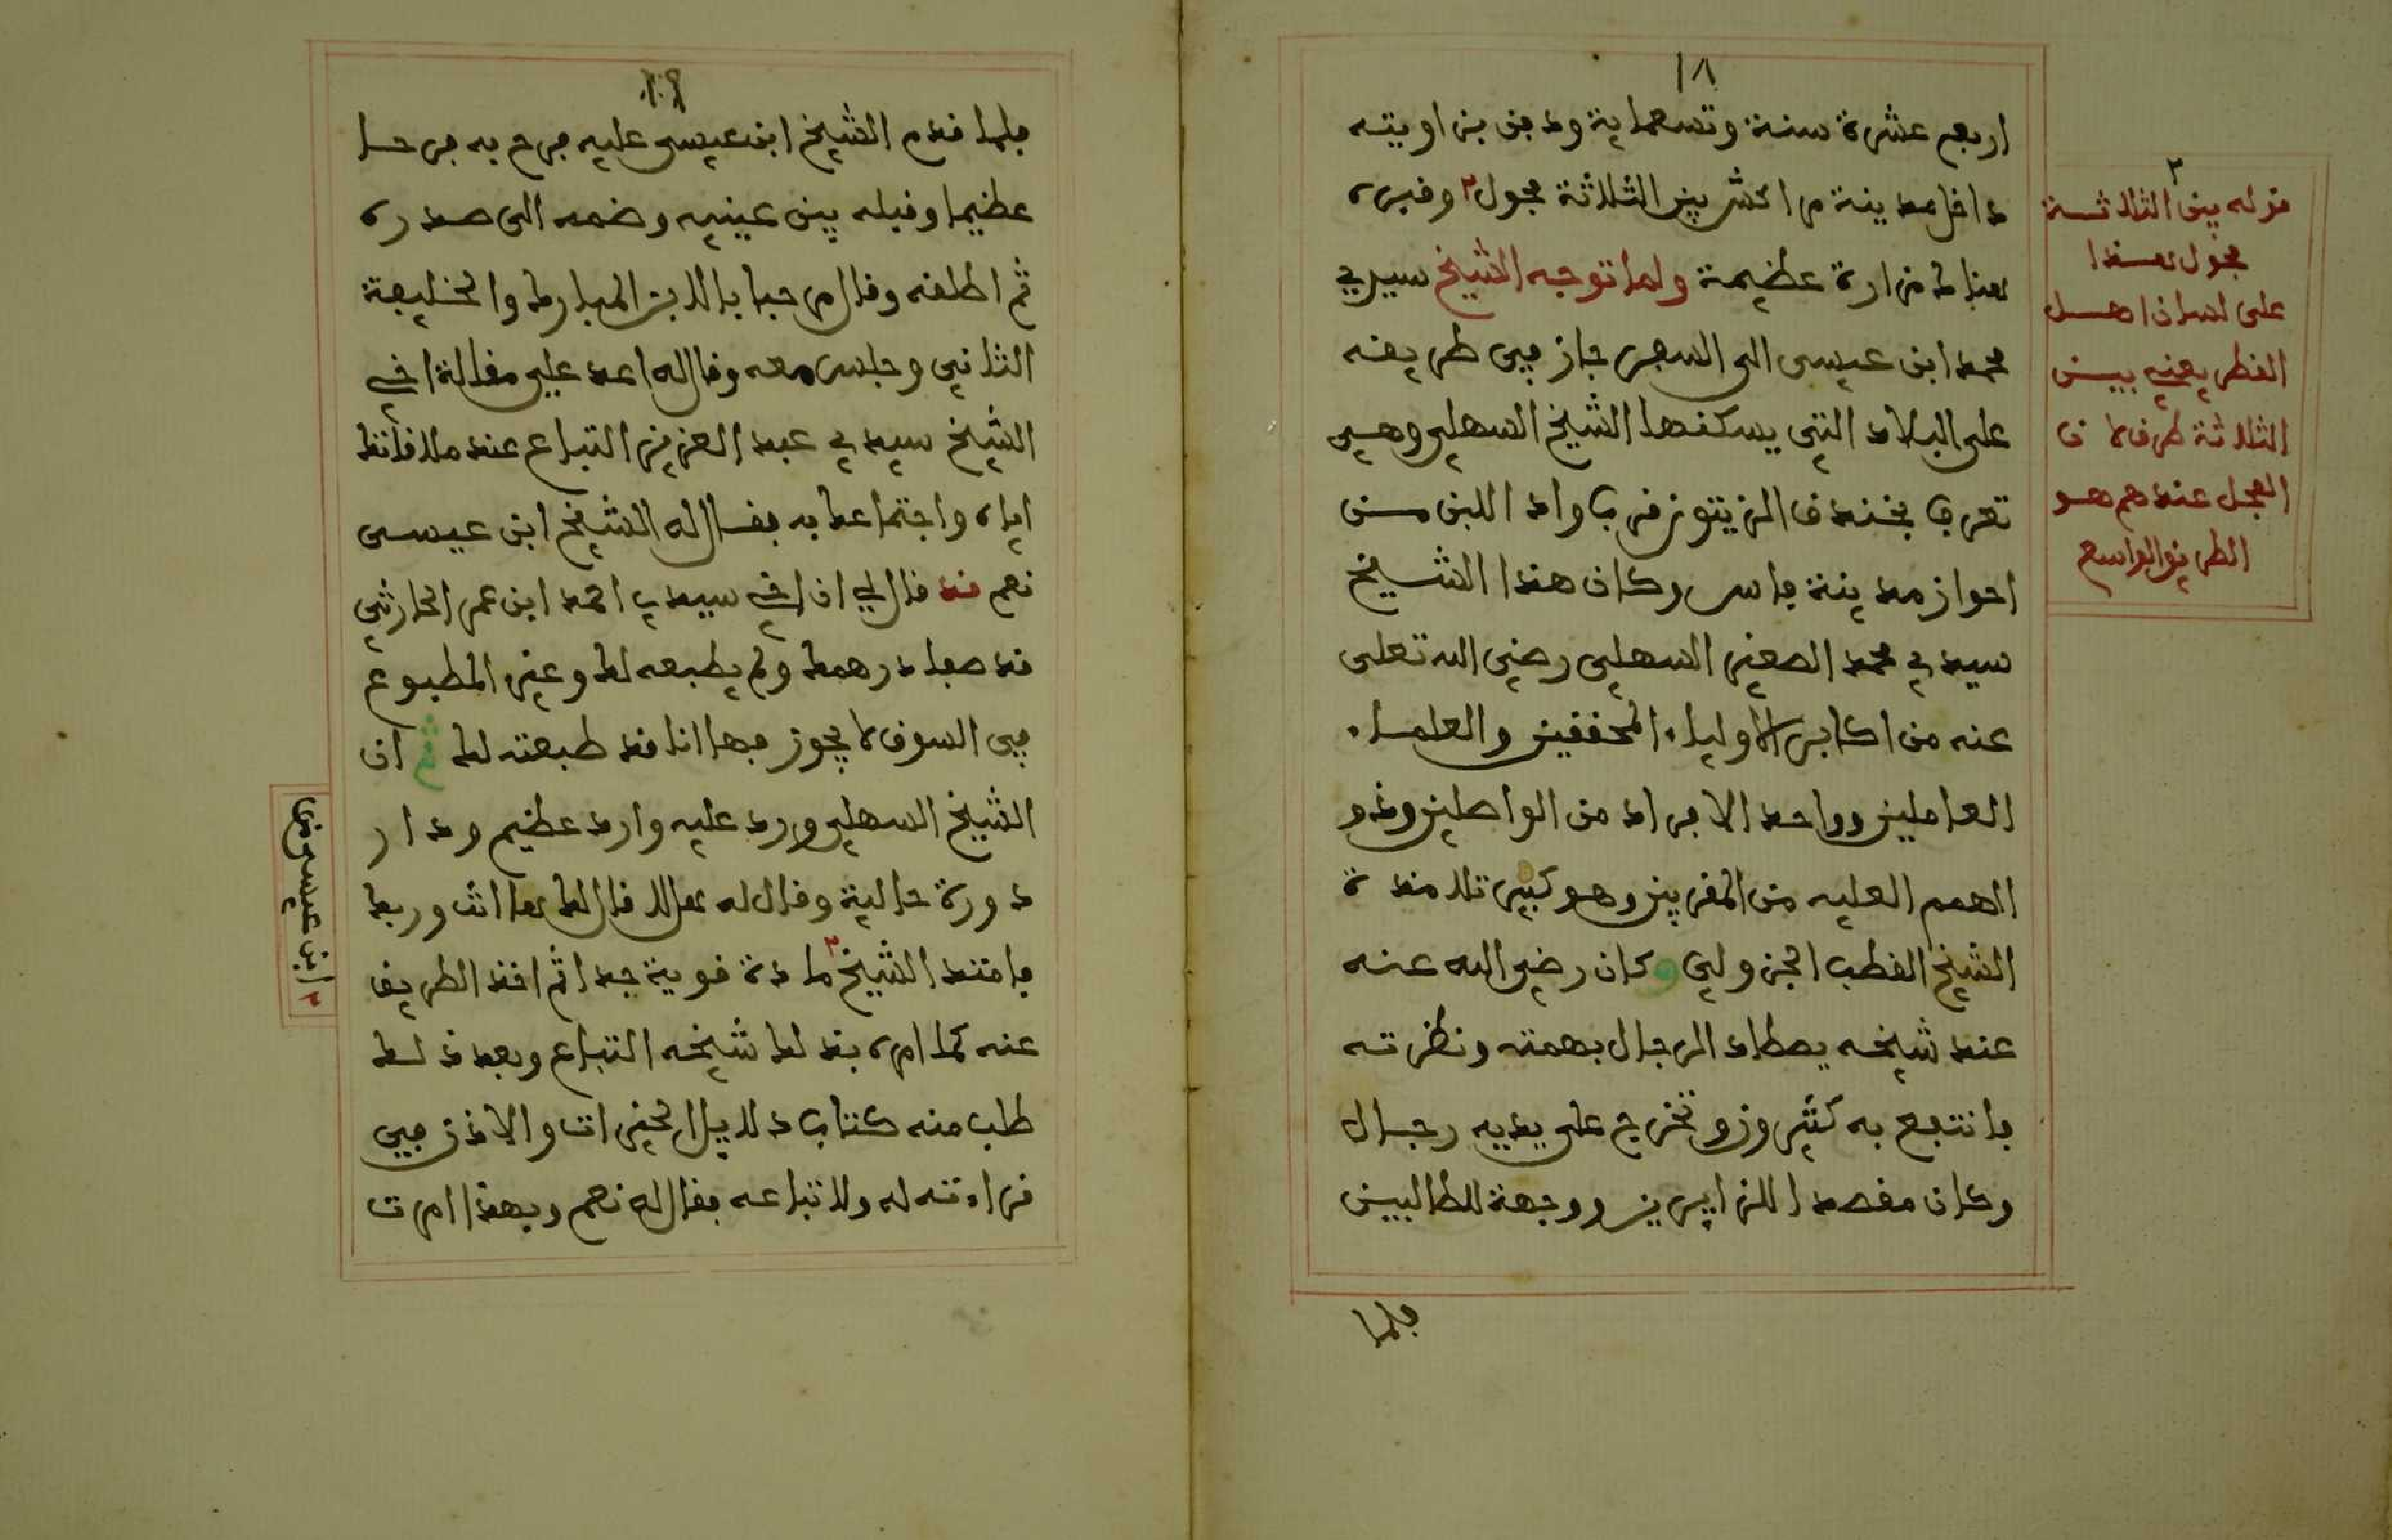 ١٨
اربع عشرة سنة وتسعماية ودفن بزاويته
داخل مدينة مراكش بين الثلاثة فحول٢ وقبره
هناك مزارة عظيمة ولما توجه الشيخ سيدي
محمد ابن عيسى الى السفر جاز في طريقه
على البلاد التي يسكنها الشيخ السهلي وهي
تعرف بخندق الزيتون قرب واد اللبن من
احواز مدينة فاس وكان هذا الشيخ
سيدي محمد الصغير السهلي رضي الله تعلى
عنه من اكابر الاولياء المحققين والعلماء
العاملين وواحد الافراد من الواصلين وذو
الهمم العليه من المقربين وهو كبير تلامذة
الشيخ القطب الجزولي وكان رضي الله عنه
عند شيخه يصطاد الرجال بهمته ونظرته
فانتفع به كثيرون وتخرج على يديه رجال
وكان مقصدا للزايرين ووجهة للطالبين
فلما
٢
قوله بين الثلاثة
فحول هذا
على لسان اهل
القطر يعني بين
الثلاثة طرق لان
الفجل عندهم هو
الطريق الواسع
١٩
فلما قدم الشيخ ابن عيسى عليه فرح به فرحا
عظيما وقبله بين عينيه وضمه الى صدره
ثم اطلقه وقال مرحبا بالابن المبارك والخليفة
الثاني وجلس معه وقال له اعد علي مقالة اخي
الشيخ سيدي عبد العزيز التباع عند ملاقاتك
اياه واجتماعك به فقال له الشيخ ابن عيسى
نعم قد قال لي ان اخي سيدي احمد ابن عمر الحارثي
قد صفا درهمك ولم يطبعه لك وغير المطبوع
في السوق لا يجوز فها انا قد طبعته لك ثم ان
الشيخ السهلي ورد عليه وارد عظيم ودار
دورة حالية وقال له
فامتد الشيخ٢ مادة قوية جدا ثم اخذ الطريق
عنه كما امره بذلك شيخه التباع وبعد ذلك
طلب منه كتاب دلايل الخيرات والاذن في
قراءته له ولاتباعه فقال له نعم وبهذا امرت
٢ ابن عيسى